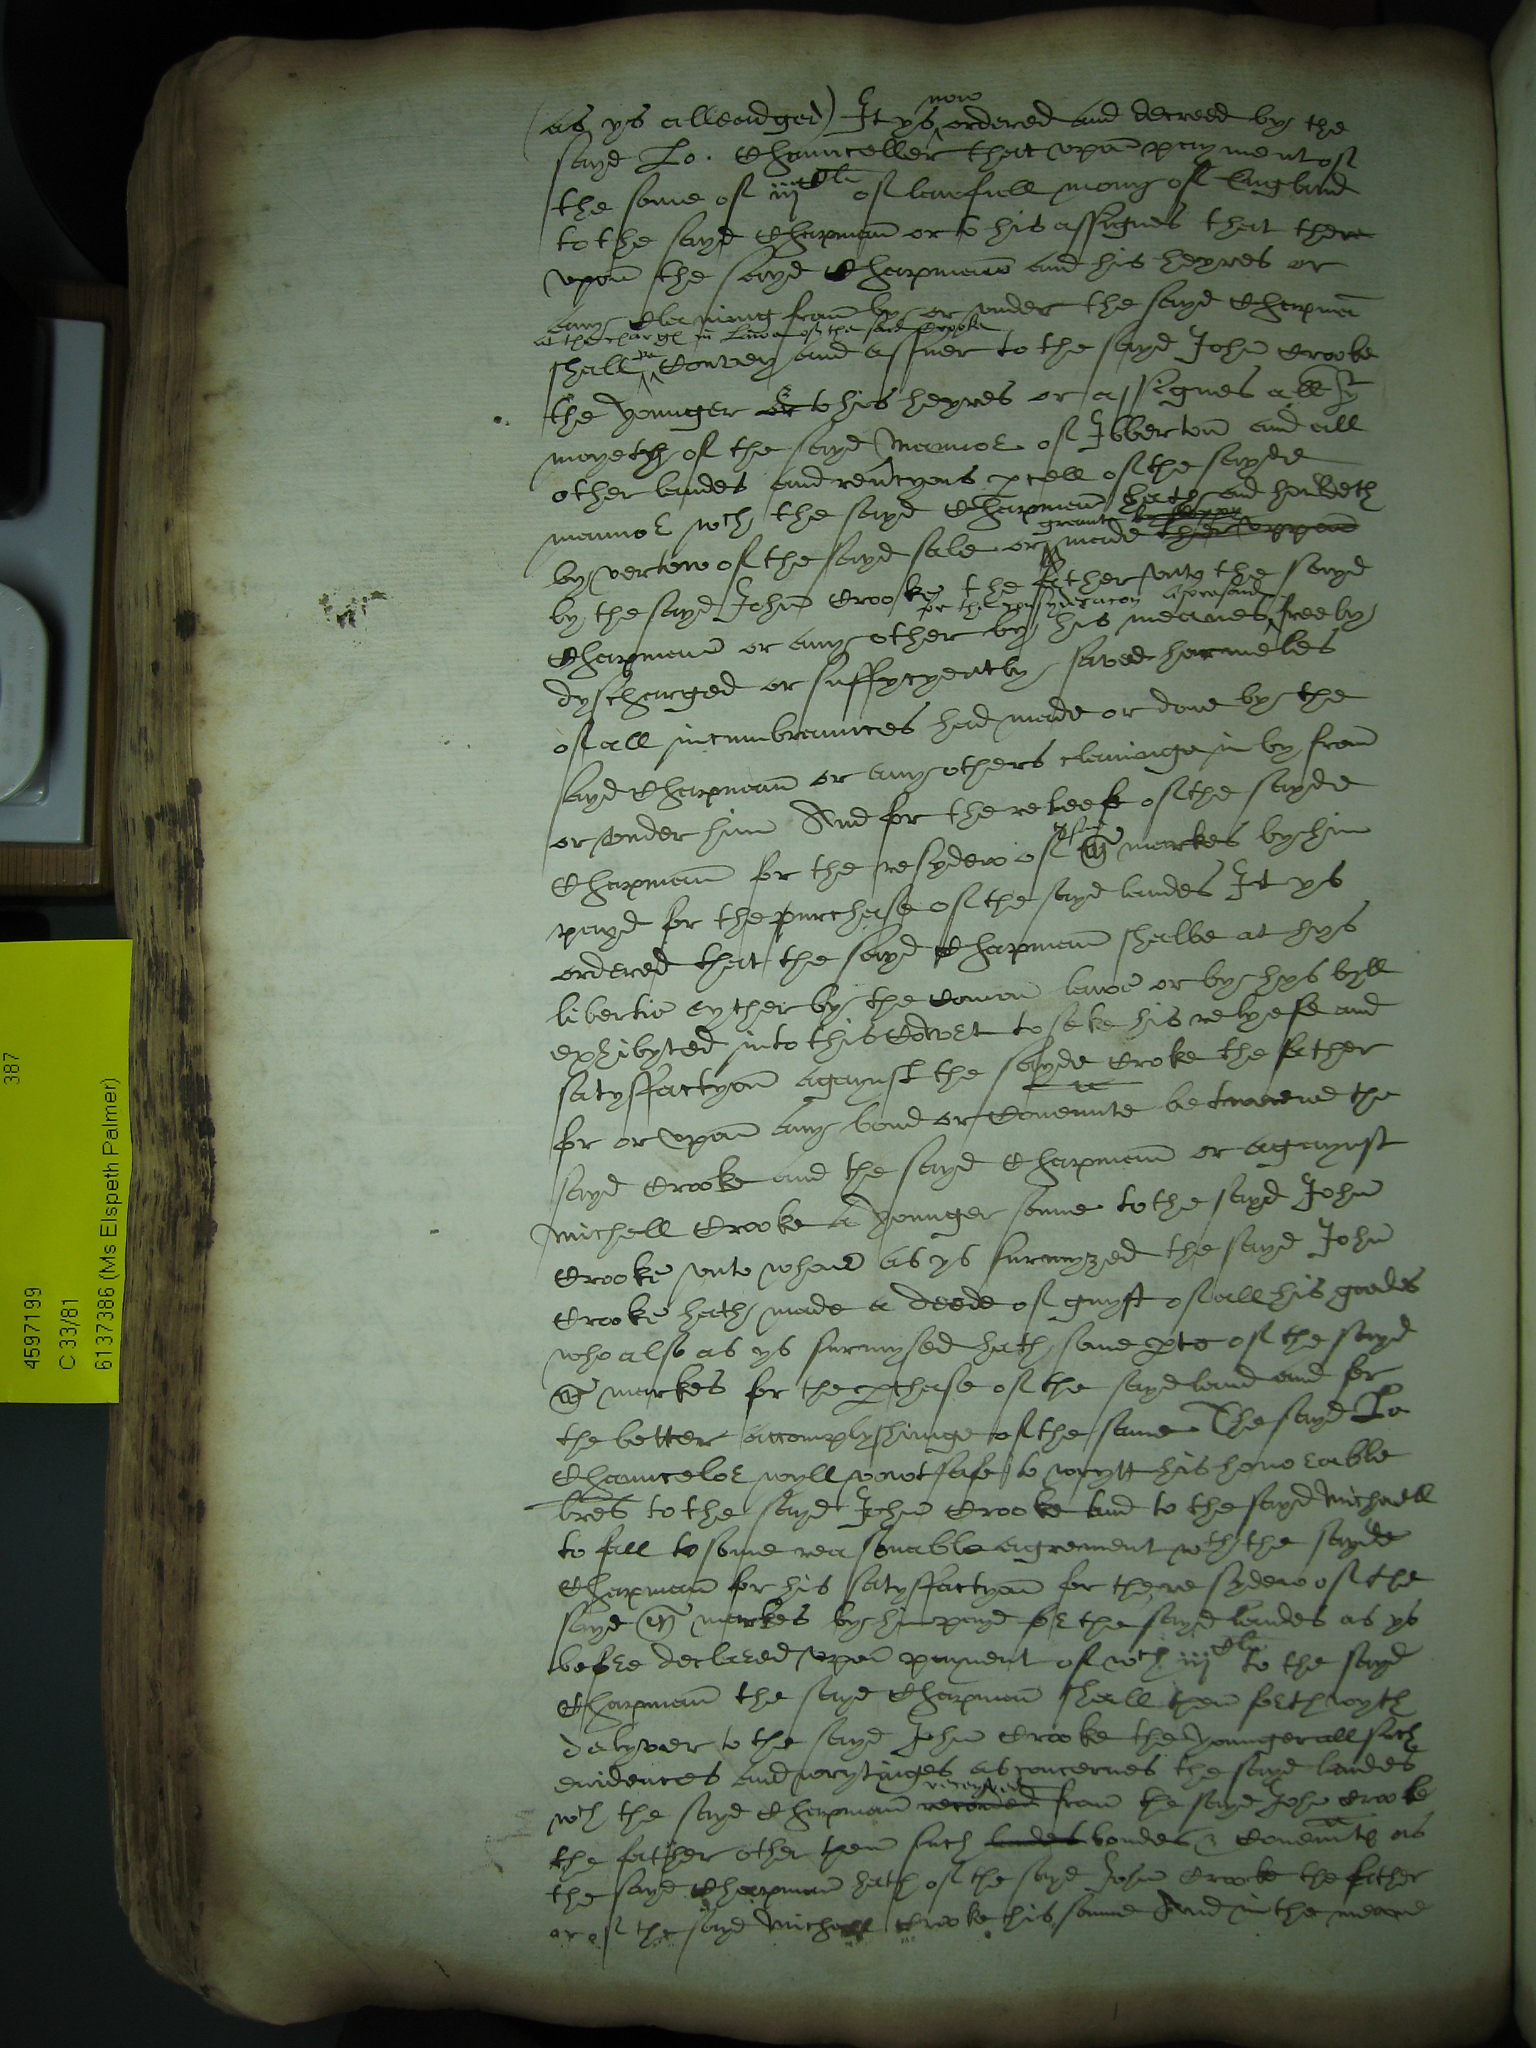 (as ys alleadged) It ys now ordered and decreed by the
sayd Lo. Chaunceller that upon payment of
the some of iiijC li of lawfull mony of England
to the sayd Chapman or to his assignes that there
upon the sayd Chapman and his heyres or
any claming from by or under the sayd Chapman
at the charges in Lawe of the said Crooke
shall convey and assuer to the sayd John Crooke
the younger or to his heyres or assignes all
moyetye of the sayd mannor of Ibberton and all
other landes and revercyons pcell of the sayde
mannor wch the sayd Chapman hath and houldeth
by vertew of the sayd sale or graunte made thereuppon
by the sayd John Crooke the father unto the sayd
for the consyderacon aforesaid
Chapman or any other by his meanes freely
dyscharged or suffycyently saved harmeles
of all incumbraunces had made or done by the
sayd Chapman or any others claminge in by from
or under him And for the releefe of the sayde
Chapman for the resydew of markes by him
payd for the purchase of the sayd landes It ys
ordered that the sayd Chapman shalbe at hys
libertie eyther by the comon lawe or by hys byll
exhibyted into this Cowrt to seke his relyefe and
satysfactyon agaynst the sayde Croke the father
for or upon any bond or Covennte betweene the
sayd Crooke and the sayd Chapman or agaynst
Michell Crooke a younger sonne to the sayd John
Crooke unto whom as ys surmyzed the sayd John
Crooke hath made a deede of guyft of all his goodes
who also as ys surmysed hath some pte of the sayd
markes for the pchase of the sayd land and for
the better accomplyshinge of the same The sayd Lo
Chauncelor wyll vowtsafe to wrytt his honorable
lres to the sayd John Crooke and to the sayd Michaell
to fall to some reasonable agrement wth the sayde
Chapman for his satysfactyon for the resydew of the
sayd markes by him payd for the sayd landes as ys
before declared upon payment of wch iiijC li to the sayd
Chapman the sayd Chapman shall then forthwyth
delyver to the sayd John Crooke the younger all such
evidences and wrytinges as concernes the sayd landes
wch the sayd Chapman recorded receyved from the sayd John Crooke
the father other then such landes bondes & Covennts as
the sayd Chapman hath of the sayd John Crooke the father
or of the sayd Michaell Crooke his sonne And in the meane
4597199
387
C 33/81
6137386 (Ms Elspeth Palmer)